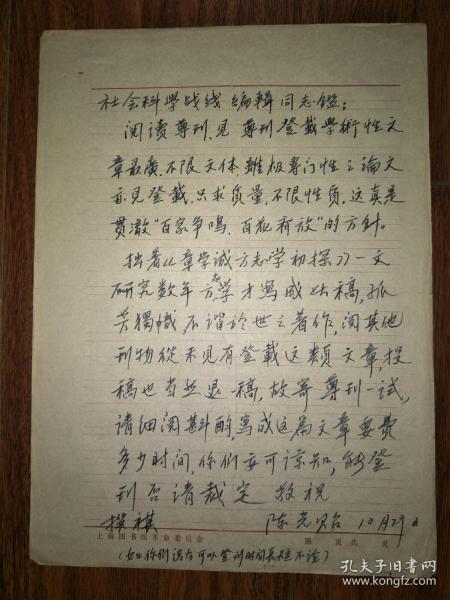 社会科學战线编輯同志鑑：
阅读尊刊，见尊刊登載學術性文
章最廣，不限文体，雖极專门性之論文
亦见登載，只求质量，不限性质，这真是
贯澈“百家争鳴，百花齐放”的方針。
拙著《章学诚方志学初探》一文
研究数年方志学才寫成此稿，孤
芳獨幟，不谐於世之著作，阅其他
刊物從未见有登載这類文章，投
稿也当然退稿，故寄尊刊一试，
请细阅斟酌，寫成这篇文章要费
多少时间，你們亦可谅知，能登
刊否请裁定 敬祝
撰祺 陈光贻 10月29日
上海图书馆革命委员会 第 页共 页
（如你們認为可以登刊时间長短不论）
孔夫子旧书网